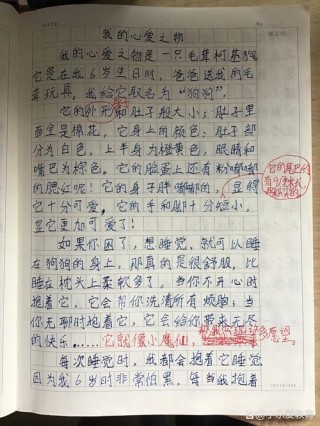 我的心爱之物
我的心爱之物是一只毛茸柯基狗
它是在我6岁生日时,爸爸送我的毛
茸玩具。我给它取名为“狗狗”。
它的外形和肚子般大小;肚子里
面宝是棉花,它身上的颜色:肚子部
分为白色,上半身为橙黄色,眼睛和
嘴巴为棕色。它的脸蛋上还有粉嘟嘟的
的腮红呢!它的身子胖嘟嘟的,显得
它十分可爱。它的手和脚十分短小,
显它更加可爱了!
它的尾巴
如果你困了,想睡觉,就可以睡
在狗狗的身上,那真的是很舒服,比
睡在枕头上柔软多了。当你不开心时
抱着它,它会帮你洗清所有烦脑;当
你无聊时抱着它,它会给你带来无尽
的快乐……它就像小魔仙,
每次睡觉时,我都会抱着它睡觉
因为我6岁时非常怕黑,每当我抱着